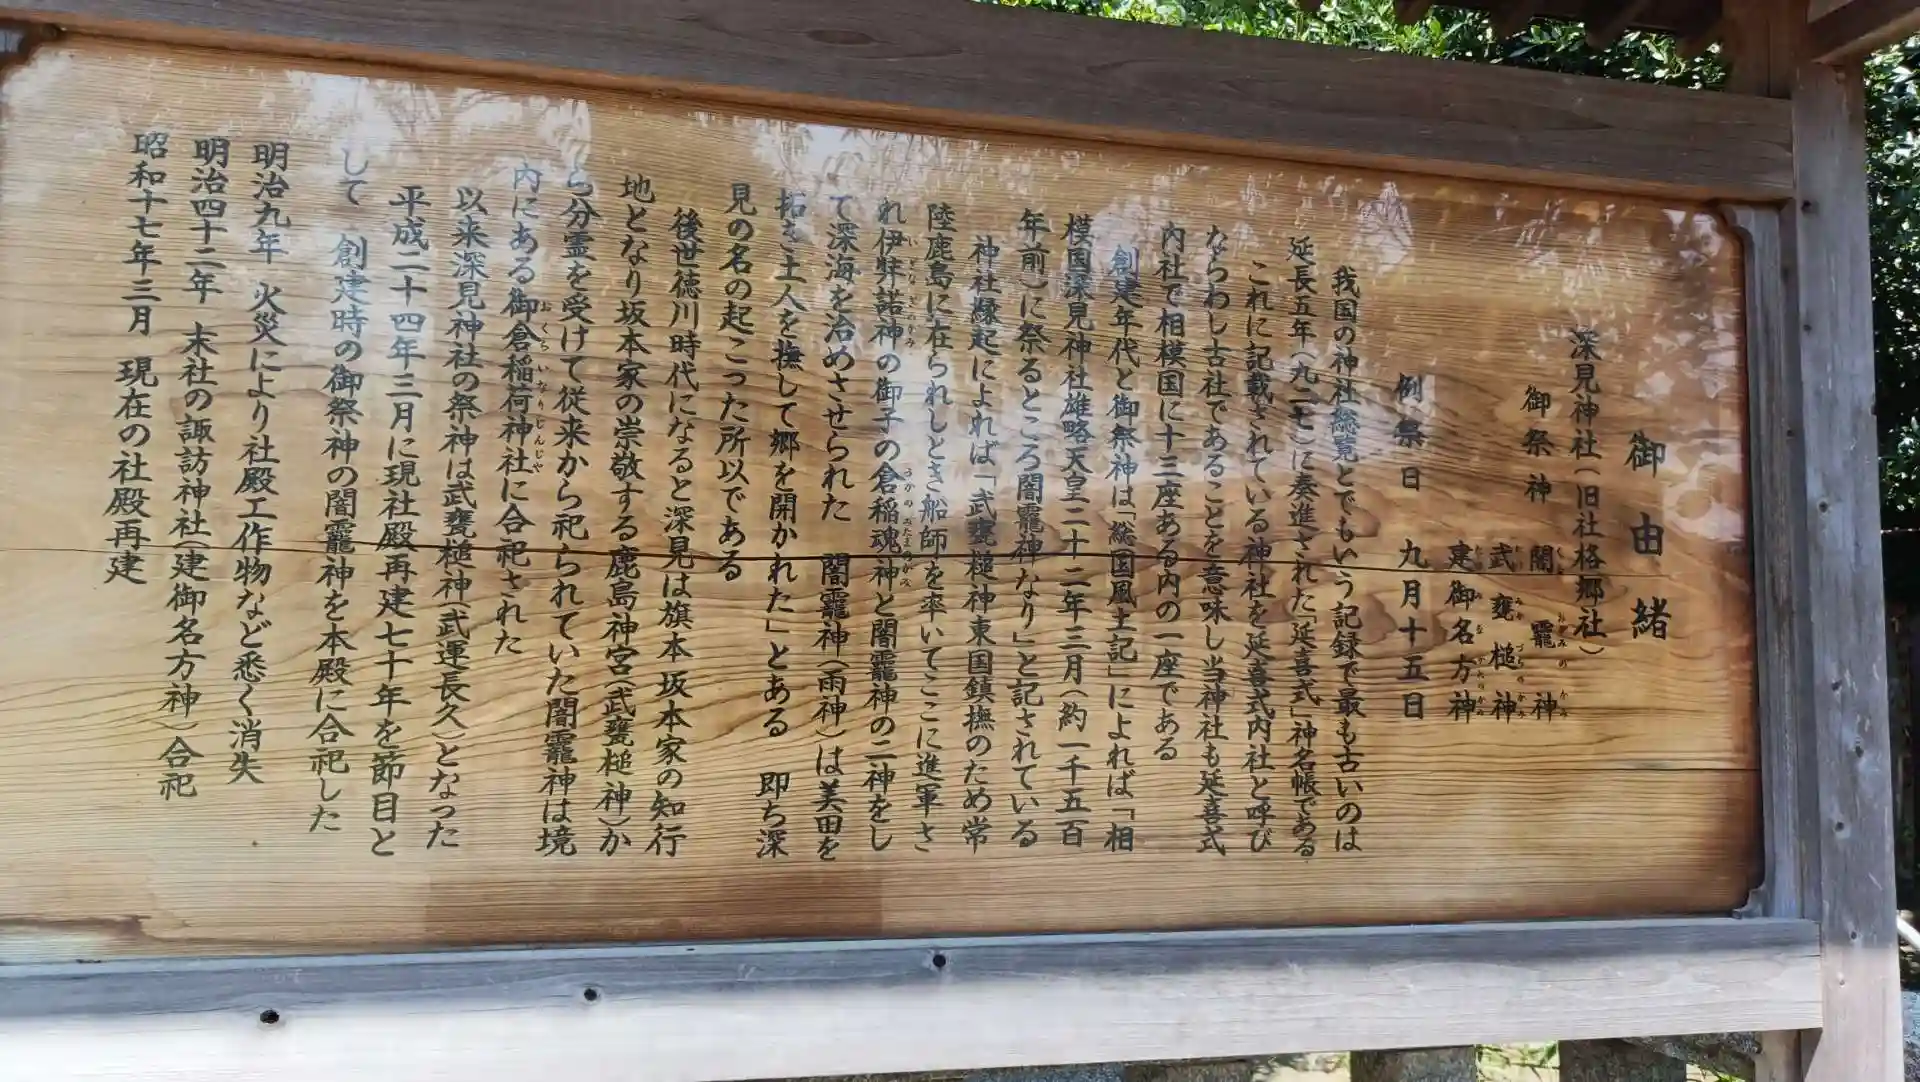 御由緒
深見神社（旧社格郷社）
御祭神　闇龗神
武甕槌神
建御名方神
例祭日　九月十五日
我国の神社総覧とでもいう記録で最も古いのは
延長五年（九二七）に奏進された「延喜式」神名帳である
これに記載されている神社を延喜式内社と呼び
ならわし古社であることを意味し当神社も延喜式
内社で相模国に十三座ある内の一座である
創建年代と御祭神は「総国風土記」によれば「相
模国深見神社雄略天皇二十二年三月（約一千五百
年前）に祭るところ闇龗神なり」と記されている
神社縁起によれば「武甕槌神東国鎮撫のため常
陸鹿島に在られしとき船師を率いてここに進軍さ
れ伊弉諾神の御子の倉稲魂神と闇龗神の二神をし
て深海を治めさせられた　闇龗神（雨神）は美田を
拓き土人を撫して郷を開かれた」とある　即ち深
見の名の起こった所以である
後世徳川時代になると深見は旗本坂本家の知行
地となり坂本家の崇敬する鹿島神宮（武甕槌神）か
ら分霊を受けて従来から祀られていた闇龗神は境
内にある御倉稲荷神社に合祀された
以来深見神社の祭神は武甕槌神（武運長久）となった
平成二十四年三月に現社殿再建七十年を節目と
して　創建時の御祭神の闇龗神を本殿に合祀した
明治九年　火災により社殿工作物など悉く消失
明治四十二年　末社の諏訪神社（建御名方神）合祀
昭和十七年三月　現在の社殿再建